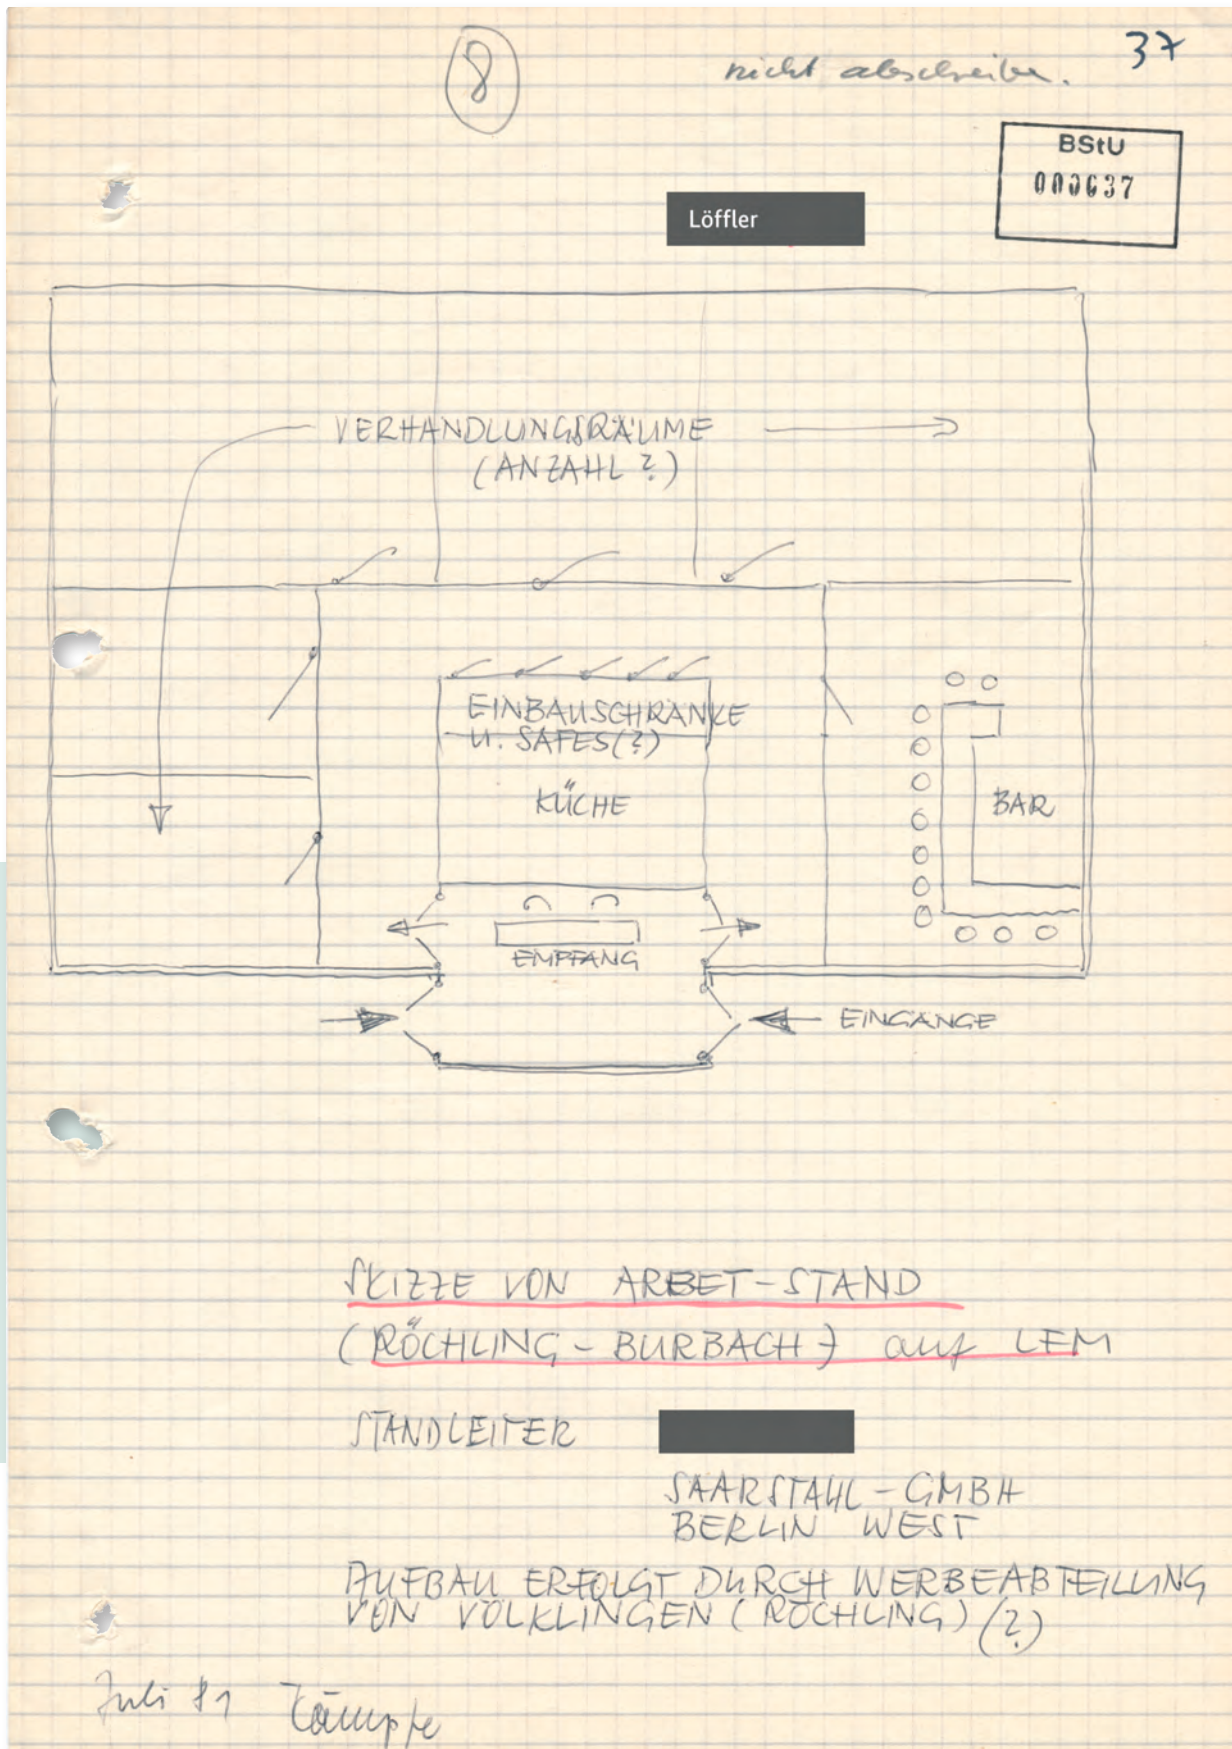 8
nicht abschreiben.
37
BStU
000637
Löffler
VERHANDLUNGSRÄUME
(ANZAHL ?)
EINBAUSCHRÄNKE
U. SAFES(?)
KÜCHE
BAR
EMPFANG
EINGÄNGE
SKIZZE VON ARBET-STAND
(RÖCHLING-BURBACH) auf LFM
STANDLEITER
SAARSTAHL-GMBH
BERLIN WEST
AUFBAU ERFOLGT DURCH WERBEABTEILUNG
VON VÖLKLINGEN (RÖCHLING) (?)
Juli 81 Kämpfe